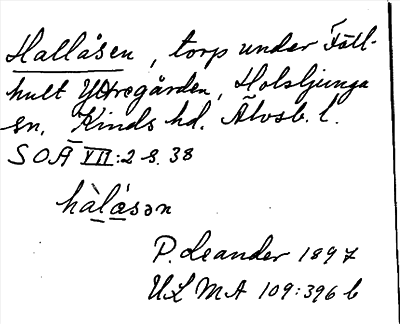 Hallåsen, torp under Fall-
hult Yttregården, Holsljunga
sn, Kinds hd. Älvsb. l.
SOÄ VII:2 s. 38
hàlåsən
P. Leander 1897
ULMA 109:396 b